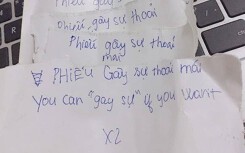 Phiếu gây
Phiếu gây sự thoải
Phiếu gây sự thoải
mái
PHIẾU Gây sự thoải mái
You can "gây sự" if you want
X2